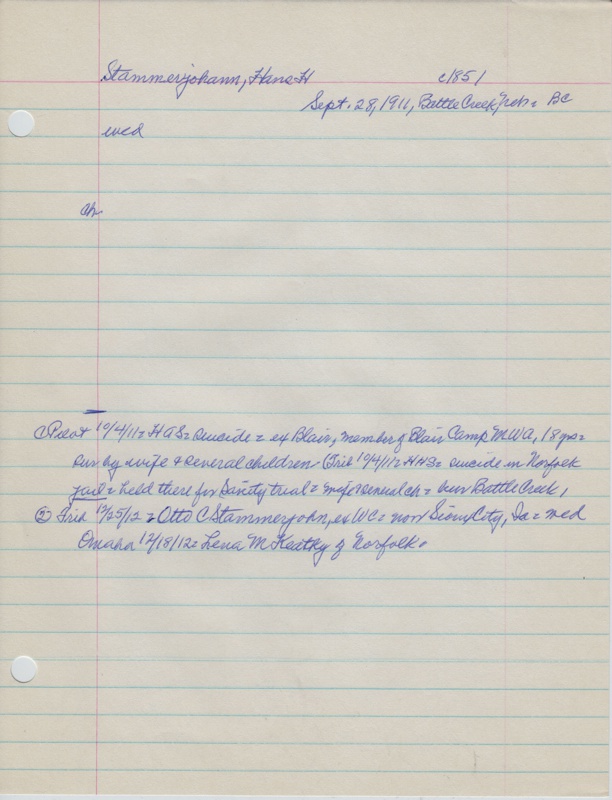 Stammerjohann, Hans H c1851
Sept. 28, 1911, Battle Creek, Neb = BC
wed
ch
Pilot 10/4/11 = HHS = suicide = ex Blair, member of Blair Camp MWA, 18 yrs =
sur by wife & several children. Trib 10/4/11 = HHS = suicide in Norfolk
jail = held there for Sanity trial = wife & several ch = bur Battle Creek,
② Trib 12/25/12 = Otto C Stammerjohn, ex WC = now Sioux City, Ia = wed
Omaha 12/18/12 = Lena McKeathy of Norfolk.